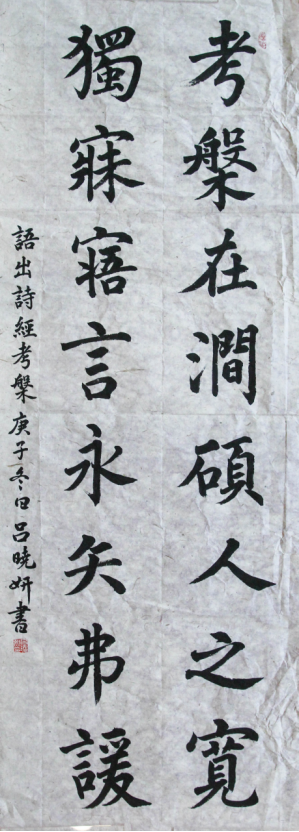 考槃在澗碩人之寬
獨寐寤言永矢弗諼
語出詩經考槃庚子冬日吕曉妍書